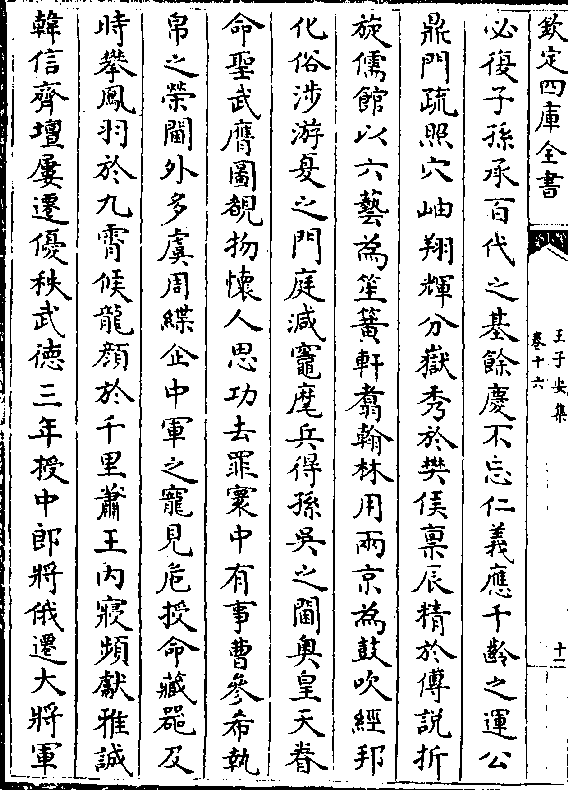 欽定四庫全書
王子安集
卷十六
十二
必復子孫承百代之基餘慶不忘仁義應千齡之運公
鼎門疏照穴岫翔輝分嶽秀於樊侯稟辰精於傅説折
旋儒館以六藝為笙簧軒翥翰林用兩京為鼓吹經邦
化俗涉游夏之門庭減竈麾兵得孫吳之閫奥皇天眷
命聖武膺圖覩物懷人思功去罪寰中有事曹參希執
帛之榮閫外多虞周緤企中軍之寵見危授命藏器及
時攀鳳羽於九霄候龍顔於千里蕭王内寢頻獻雅誠
韓信齊壇屢遷優秩武德三年授中郎將俄遷大將軍